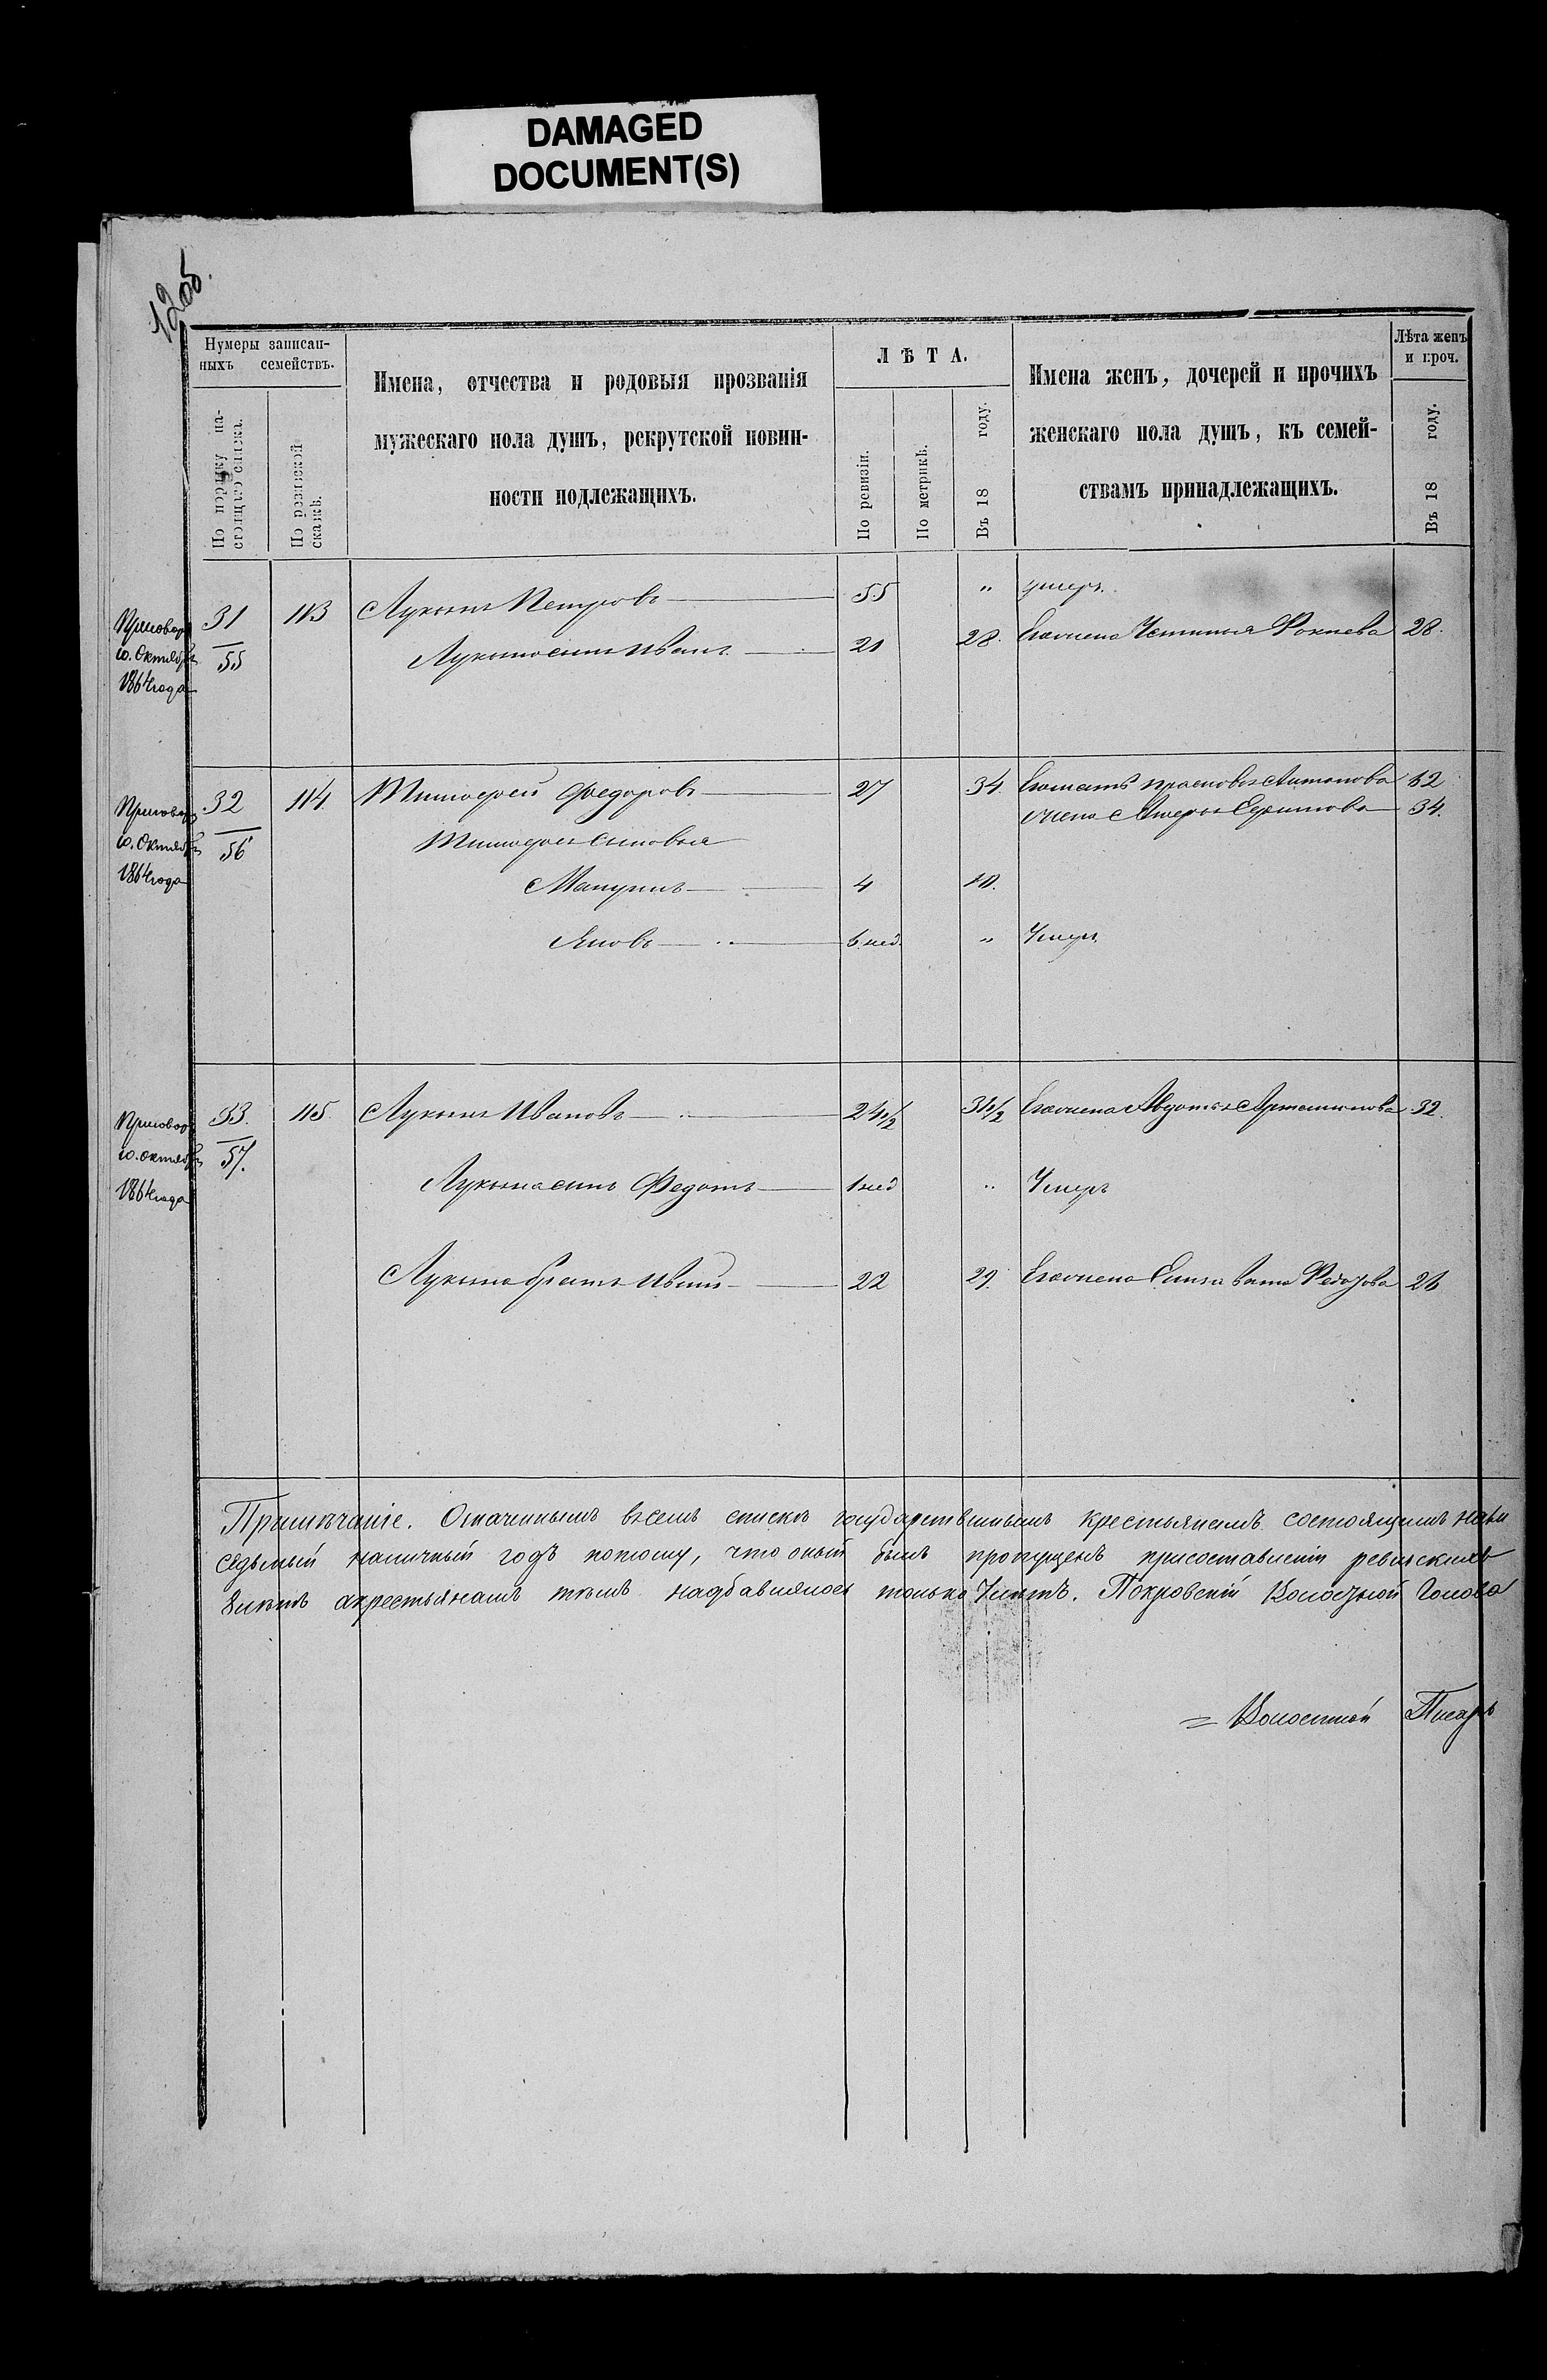 DAMAGED
DOCUMENT(S)
1205.
Нумеры записан-
ныхъ семействъ.
По порядку на-
стоящаго списка.
По ревизской
сказкѣ.
Имена, отчества и родовыя прозванія
мужескаго пола душъ, рекрутской повин-
ности подлежащихъ.
ЛѢТА.
По ревизіи.
По метрикѣ.
Въ 18 году.
Имена женъ, дочерей и прочихъ
женскаго пола душъ, къ семей-
ствамъ принадлежащихъ.
Лѣта женъ
и проч.
Въ 18 году.
Приговор
10. Октября
1864 года
31
55
113 Лукьянъ Петровъ 55 " умеръ.
Лукьяна сынъ Иванъ 21 28. Его жена Устинья 28.
Приговор
10. Октября
1864 года
32
56
114. Тимофей Федоровъ 27 34. Его мать Прасковья Антонова 62
жена 34.
Тимофея сыновья
4 10.
Яковъ 6 нед. " Умеръ
Приговор
10. октября
1864 года
33.
57.
115. Лукьянъ Ивановъ 24 1/2 31 1/2 Его жена Авдотья 32.
Лукьяна сынъ Федотъ 1 нед " Умеръ
Лукьяна братъ Иванъ 22 29. Его жена Елизавета Федорова 26
Примѣчаніе. Означеннымъ въ семъ спискѣ государственнымъ крестьянамъ состоящимъ
седьмый наличный годъ потому, что оный былъ пропущенъ при составленіи ревизскихъ
а крестьянамъ тѣмъ надбавлялось только 6 лѣтъ. Покровскій Волостной Голова
= Волостной Писарь